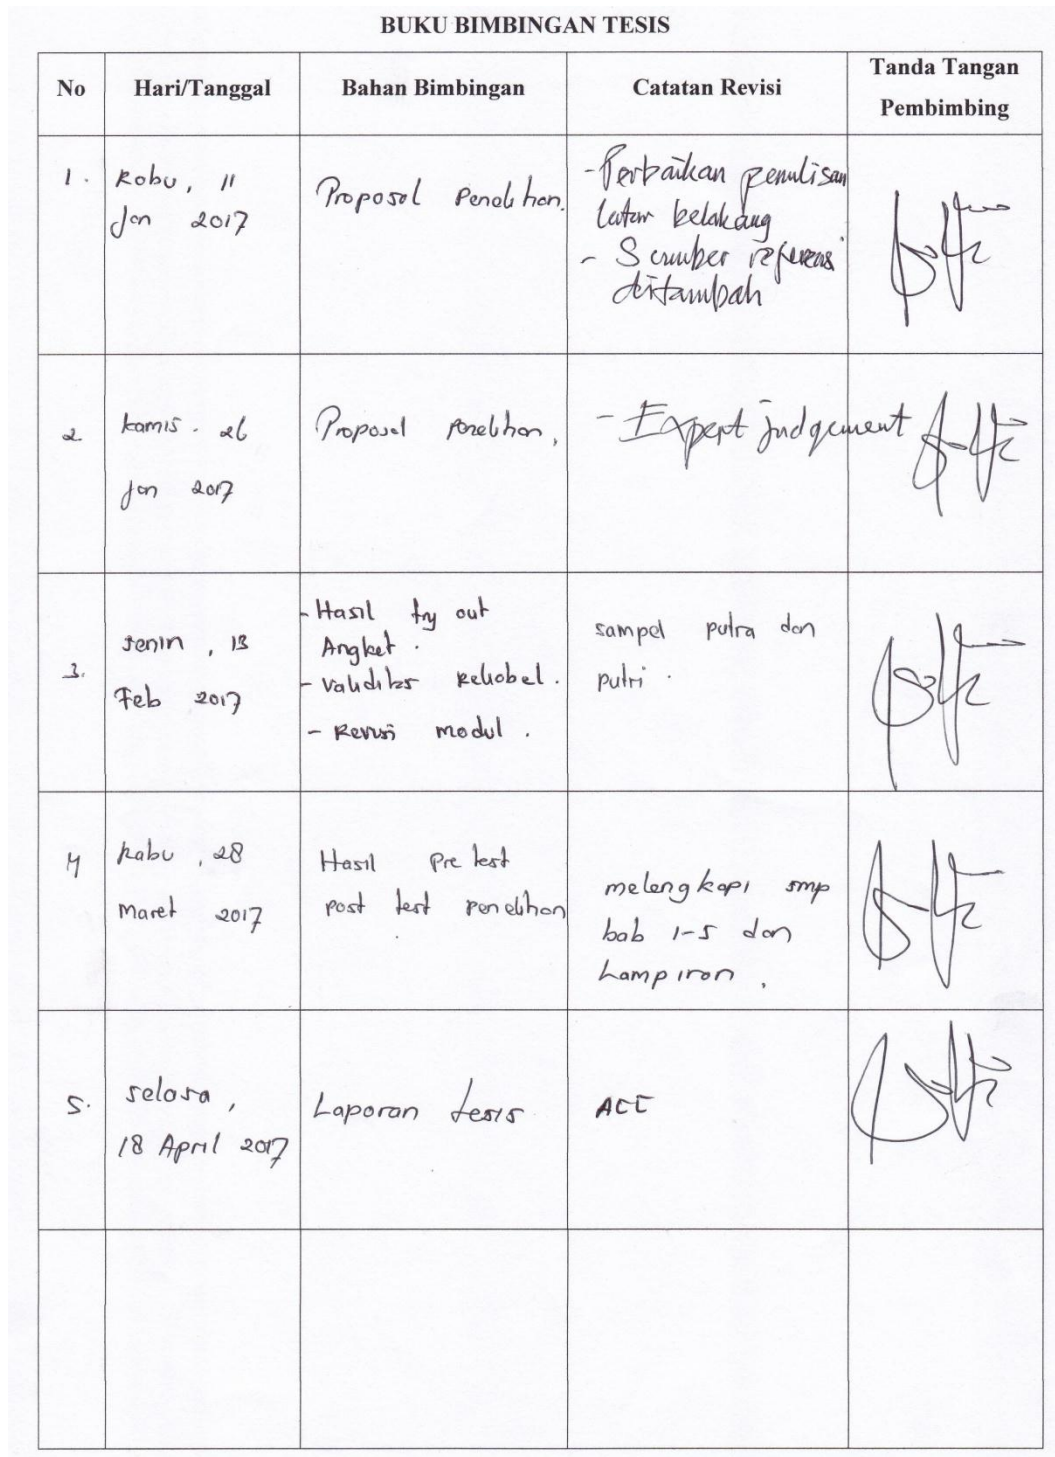 BUKU BIMBINGAN TESIS
No Hari/Tanggal Bahan Bimbingan Catatan Revisi Tanda Tangan Pembimbing
1. Rabu, 11
Jan 2017
Proposal Penelitian.
- Perbaikan penulisan
latar belakang
- Sumber referensi
ditambah
2. kamis. 26
Jan 2017
Proposal Penelitian,
- Expert judgement
3. Senin, 13
Feb 2017
- Hasil try out
Angket.
- Validitas Reliabel.
- Revisi modul.
sampel putra dan
putri.
4 Rabu, 28
Maret 2017
Hasil Pre test
post test penelitian
melengkapi smp
bab 1-5 dan
Lampiran,
5. Selasa,
18 April 2017
Laporan tesis
ACC